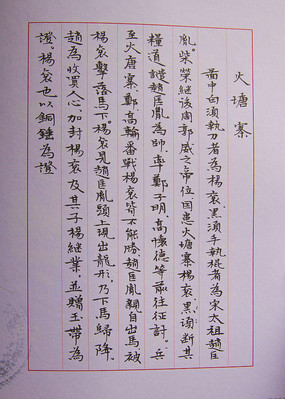 火塘寨
畫中白須執刀者為楊袞黑須手執棍者為宋太祖趙匡
胤。柴榮繼後周郭威之帝位因患火塘寨楊袞黑須斷其
糧道諾趙匡胤為帥率鄭子明高懷德等前往征討。兵
至火塘寨鄭高輪番戰楊袞皆不能勝趙匡胤親自出馬被
楊袞擊落馬下。楊袞見趙匡胤頭上現出龍形乃下馬歸降。
趙為收買人心加封楊袞及其子楊繼業並贈玉帶為
證。楊袞也以銅錘為證